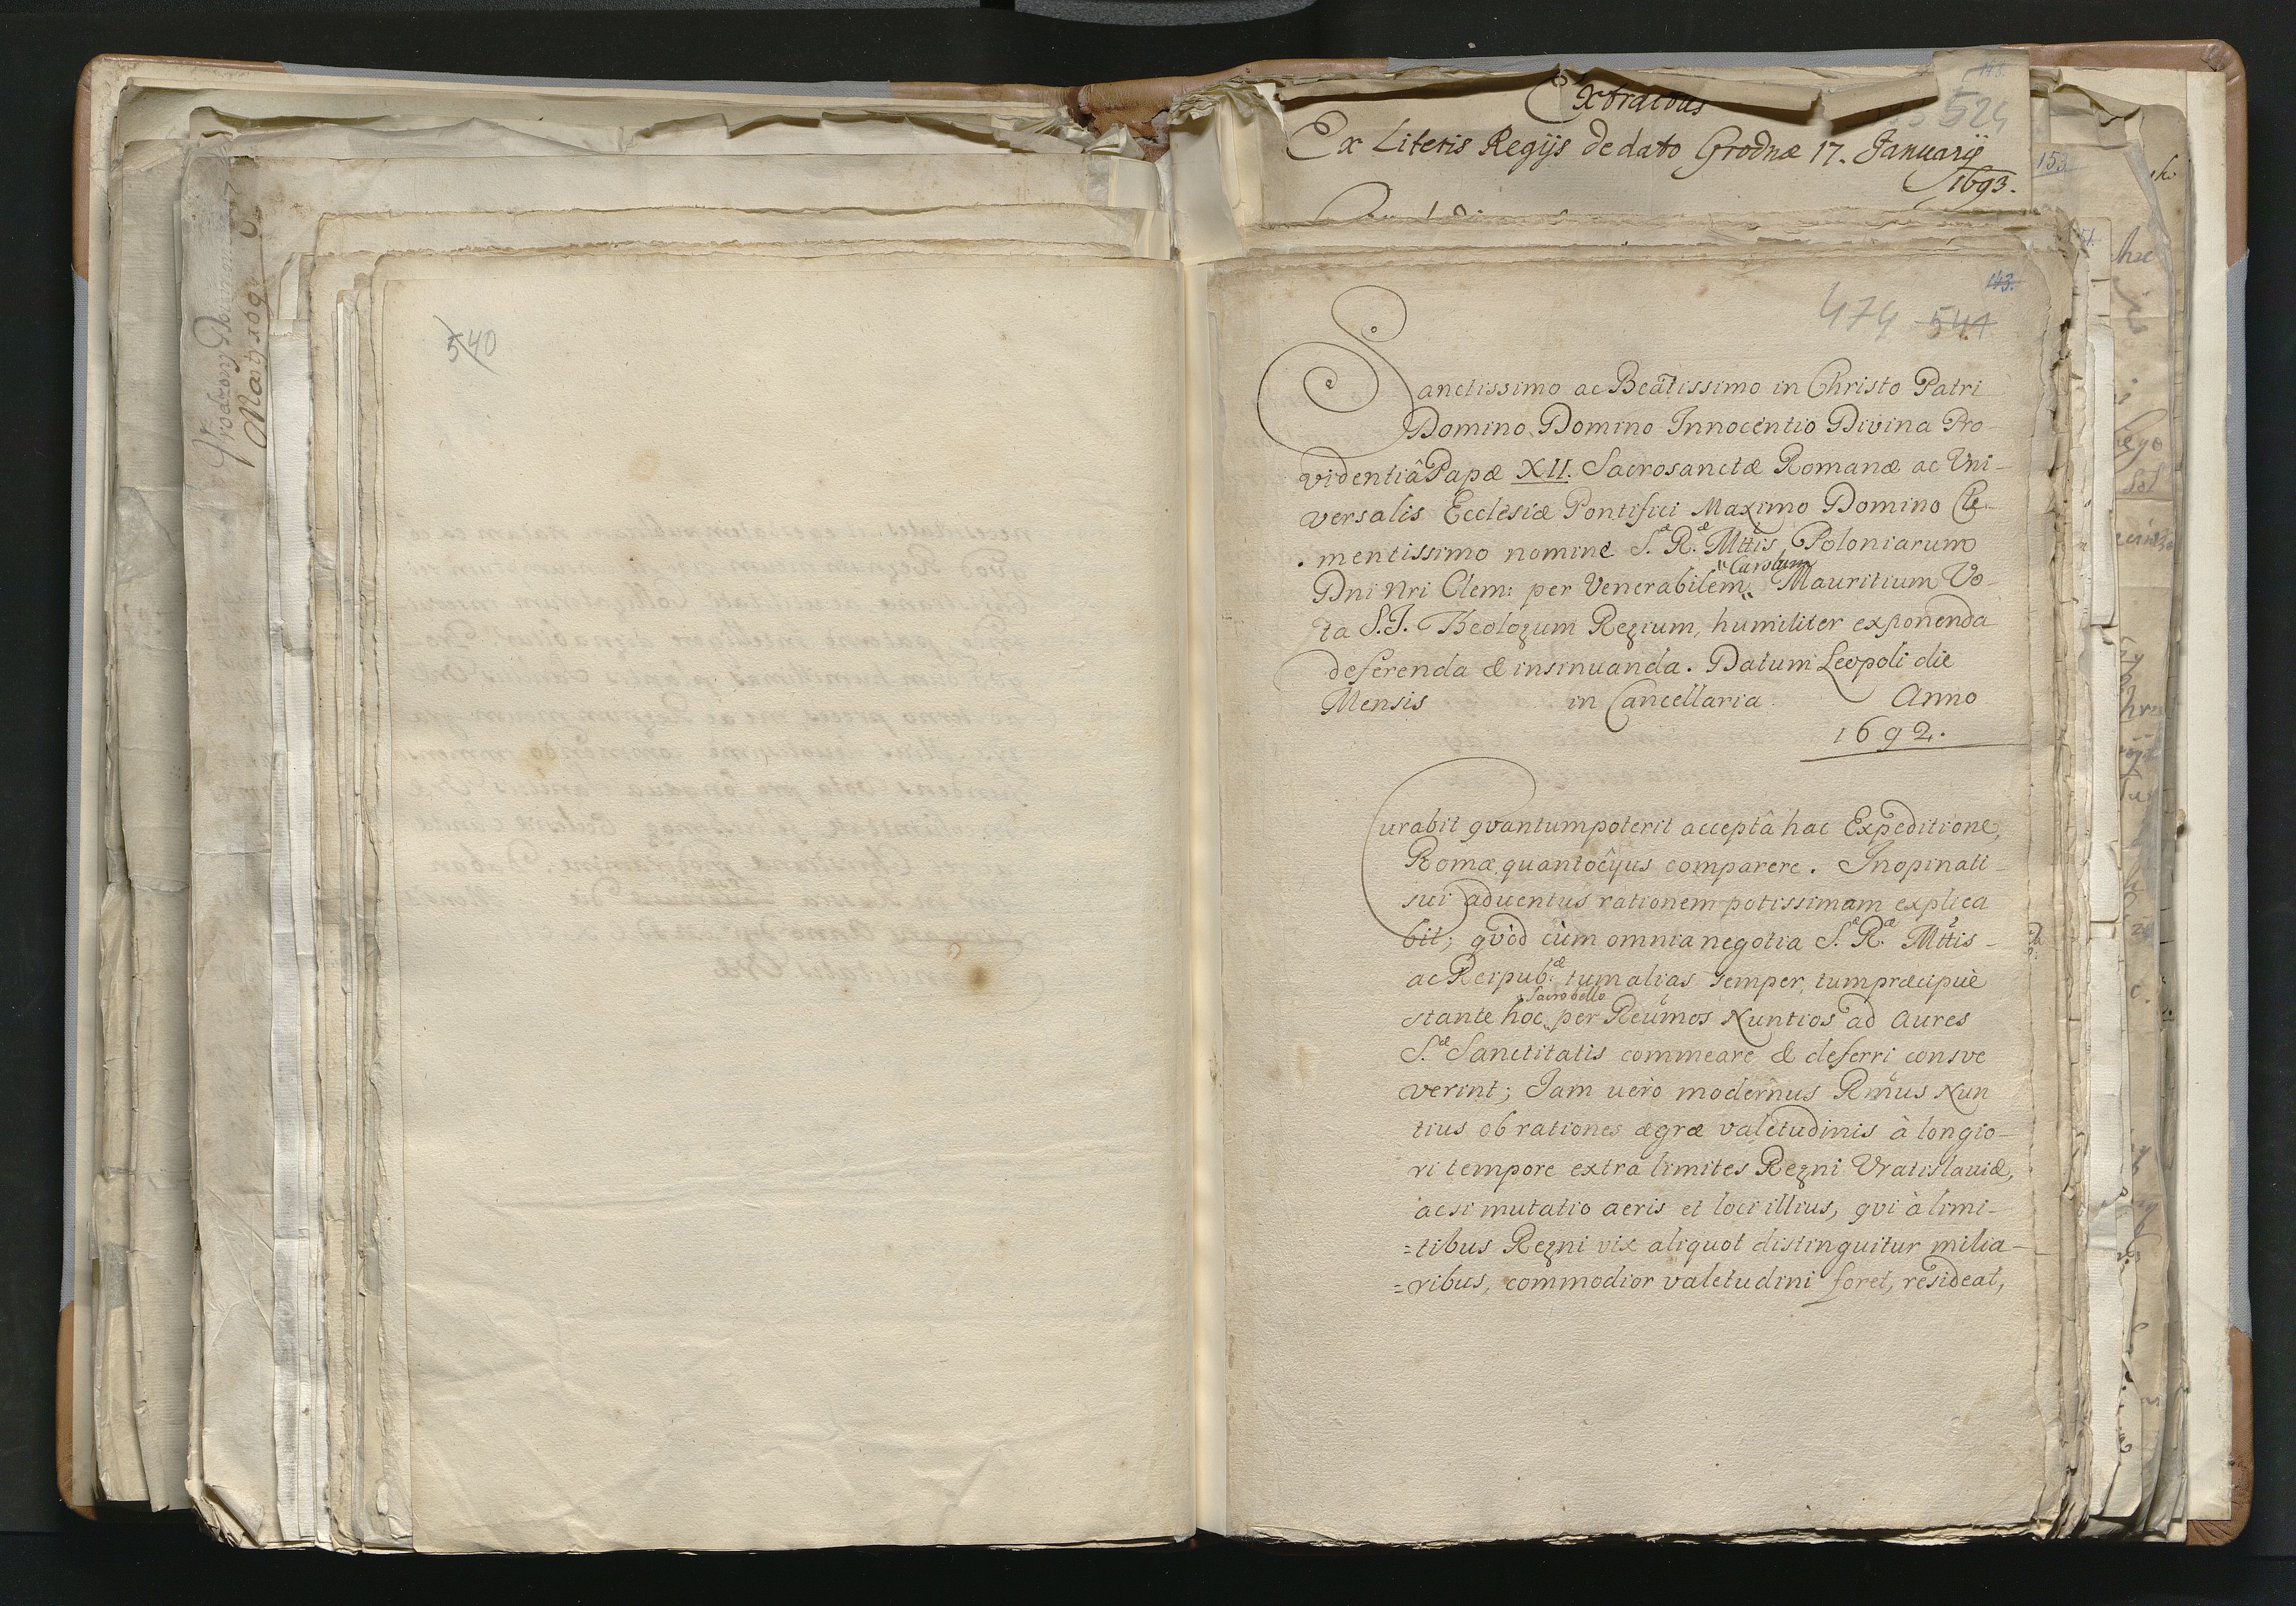 540
Extractus
Ex Literis Regijs de dato Grodnæ 17. Januarij
1693.
524
153
143.
474 541
Sanctissimo ac Beatissimo in Christo Patri
Domino Domino Innocentio Divina Pro-
videntiâ Papæ XII. Sacrosanctæ Romanæ ac Uni-
versalis Ecclesiæ Pontifici Maximo Domino Cle-
mentissimo nomine S.æ R.æ Mttis Poloniarum
Dni Nri Clem: per Venerabilem "Carolum" Mauritium Vo-
ta S.J. Theologum Regium, humiliter exponenda
deferenda & insinuanda. Datum Leopoli die
Mensis in Cancellaria Anno
1692.
Curabit qvantum poterit acceptâ hac Expeditione,
Romæ quantocÿus comparere. Inopinati
sui aduentus rationem potissimam explica
bit; qvòd cùm omnia negotia S.æ R.æ Mttis
ac Reipub:æ tum alias semper, tum præcipuè
stante hoc "Sacro bello" per Reumos Nuntios ad aures
S.æ Sanctitatis commeare & deferri consve
verint; Jam uerò modernus Rmus Nun
tius ob rationes ægræ valetudinis à longio-
ri tempore extra limites Regni Vratislauiæ,
ac si mutatio aeris et loci illius, qvi à limi-
=tibus Regni vix aliquot distinguitur milia-
=ribus, commodior valetudini foret, resideat,